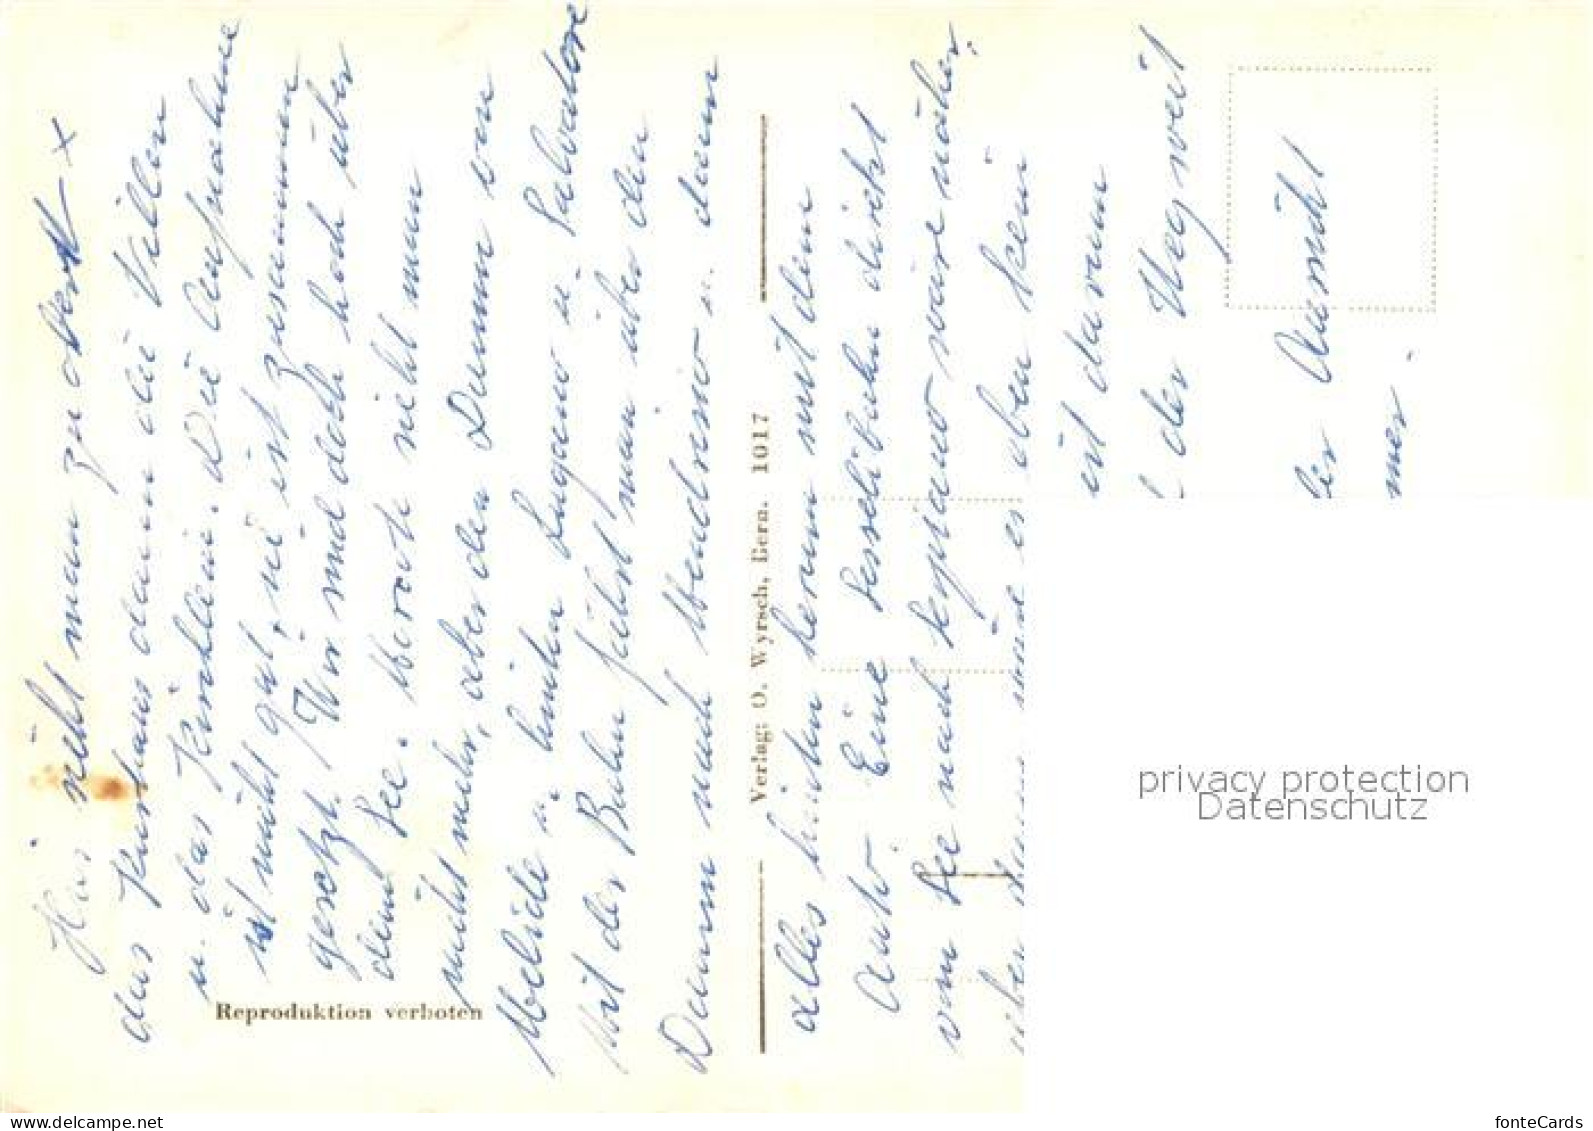 Hier sieht man zu oberst x
das Kurhaus dann die Villen
u. das Kirchlein. Die Aufnahme
ist nicht gut, sie ist zusammen
gesetzt. Wir sind doch hoch über
dem See. Morcote sieht man
nicht mehr, aber den Damm von
Melide u. hinten Lugano u. Salvatore
Mit der Bahn fährt man über den
Damm nach Mendrisio u. dann
Reproduktion verboten
Verlag: O. Wyrsch, Bern. 1017
alles hinten herum mit dem
Auto. Eine Sesselibahn direkt
vom See nach Serpiano wäre näher.
oben kein
ist darum
der Weg weit
Aussicht
privacy protection
Datenschutz
fonteCards
www.delcampe.net